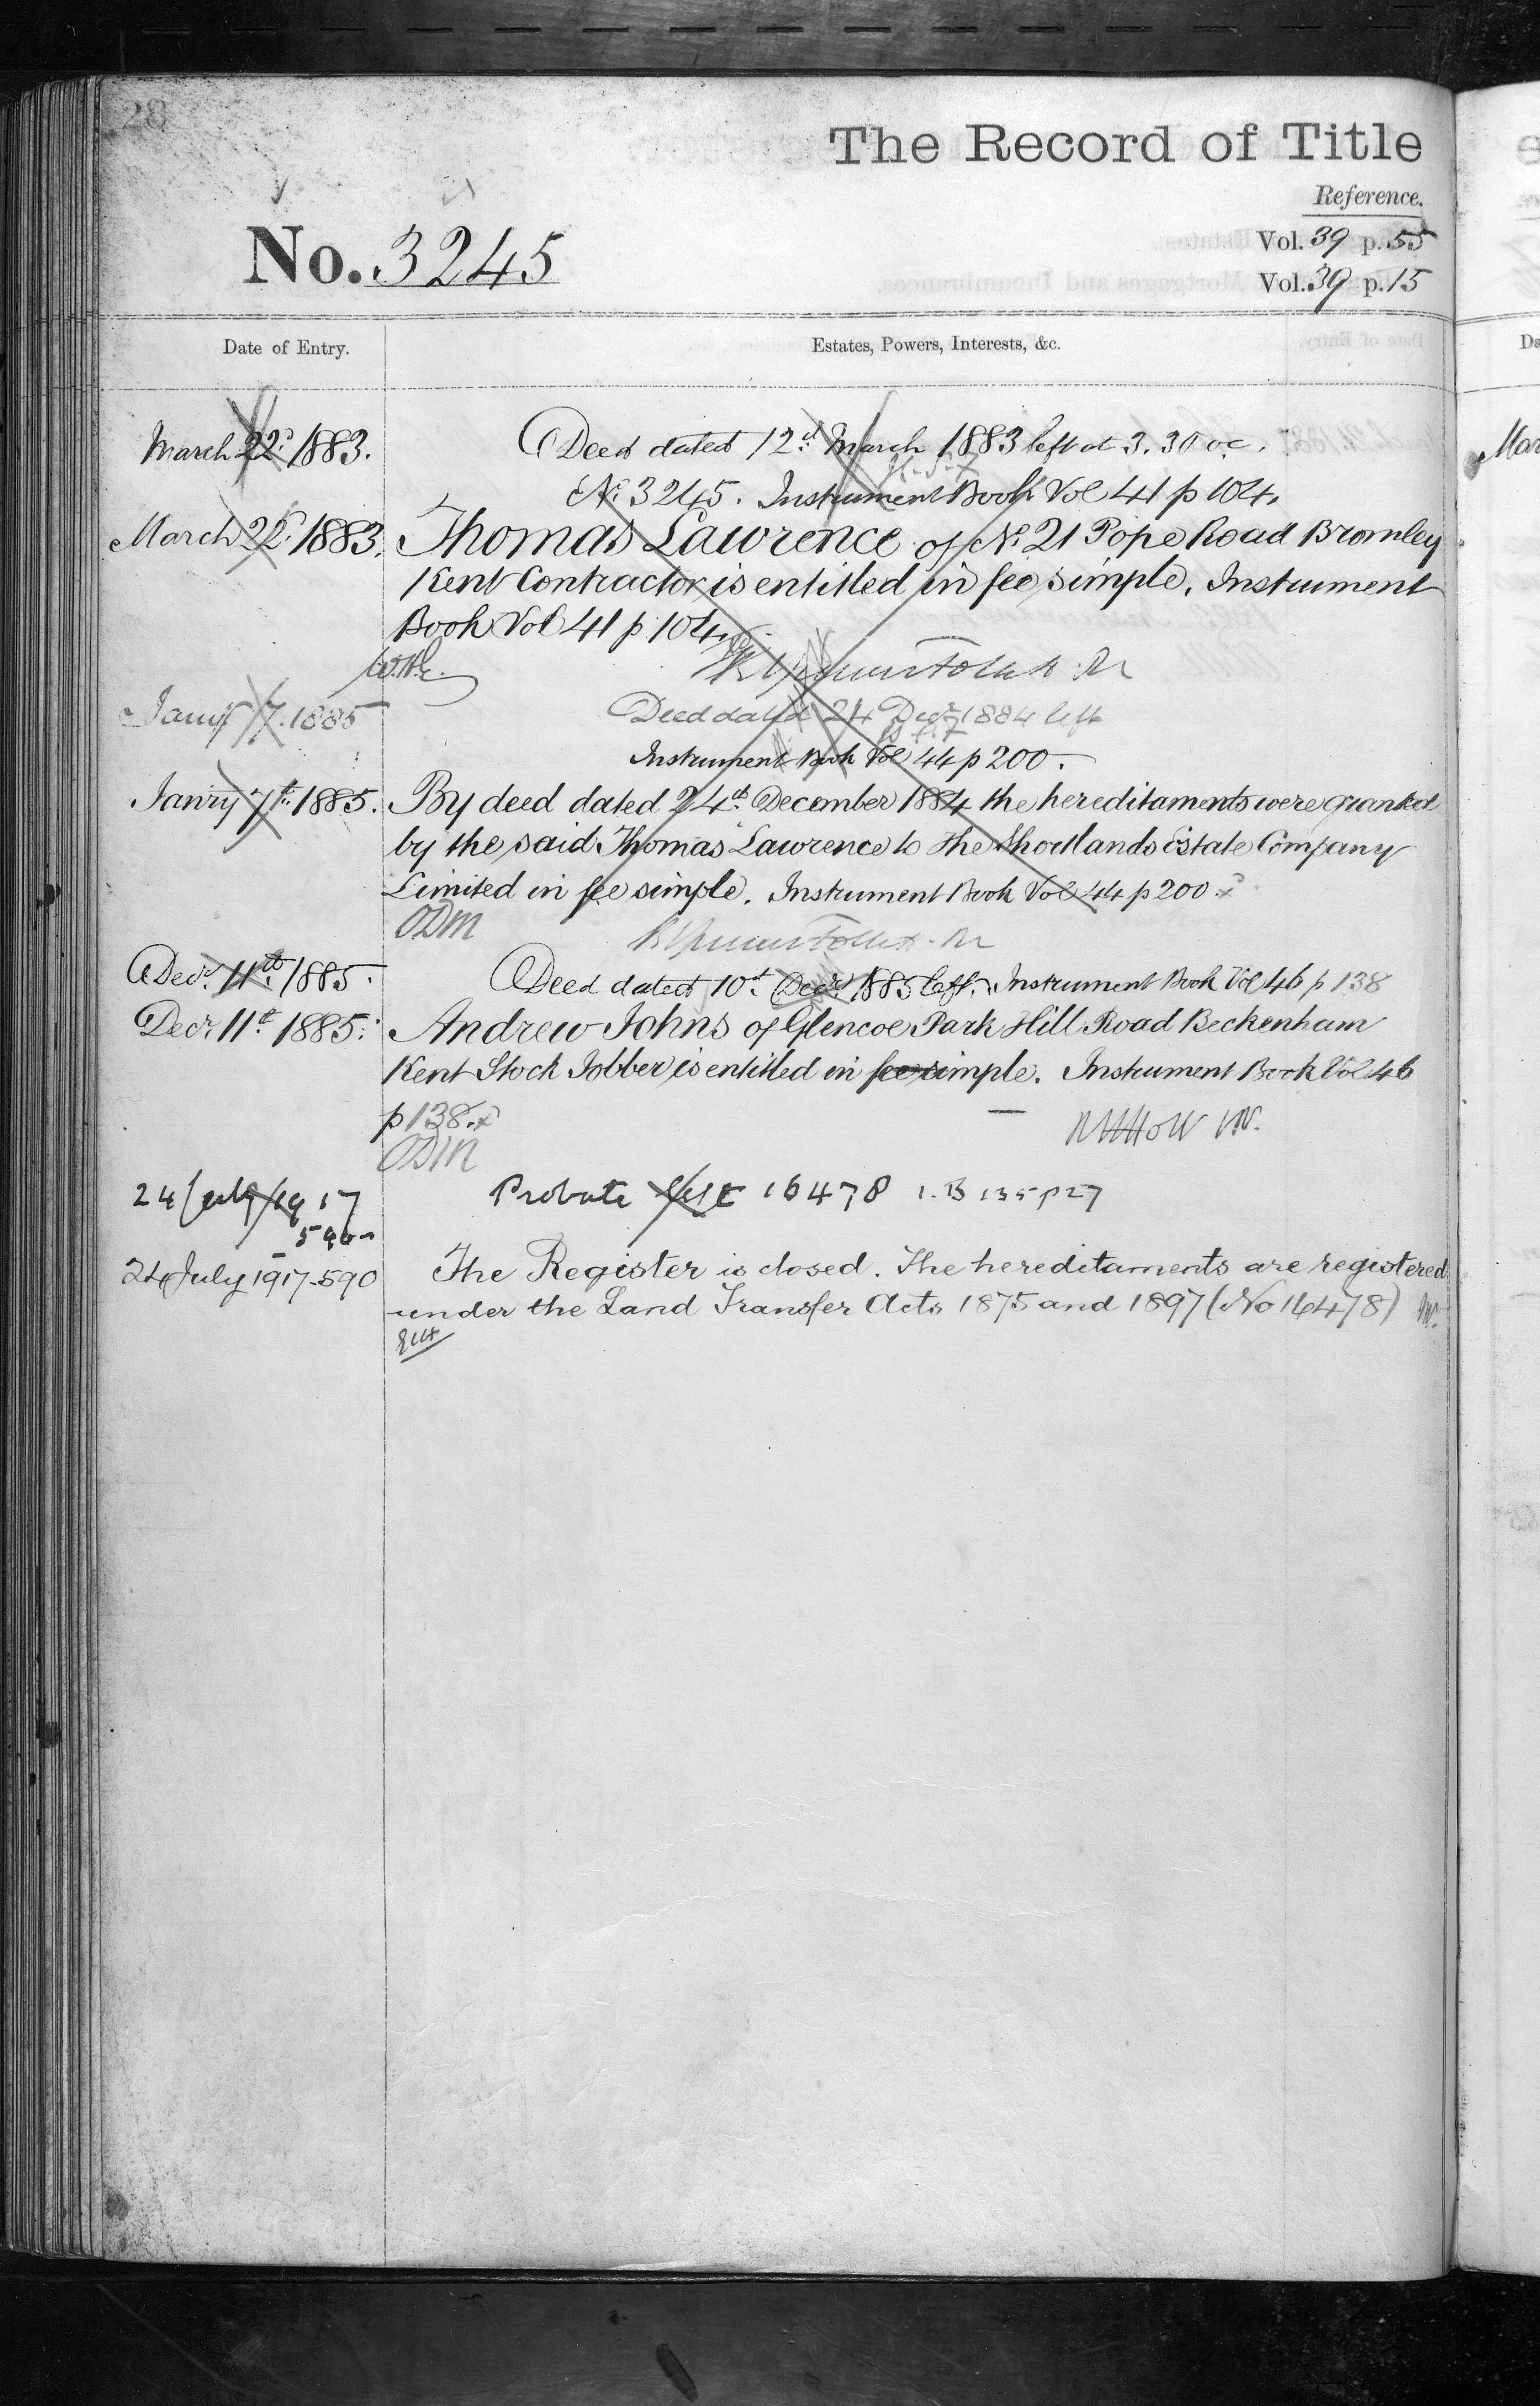 28
The Record of Title
Reference.
No. 3245
Vol. 39 p. 55
Vol. 39 p. 15
Date of Entry.
Estates, Powers, Interests, &c.
March 22d 1883.
Deed dated 12th March 1883 left at 3.30 oc.
No 3245. Instrument Book Vol 41 p 104.
March 22d 1883.
Thomas Lawrence of No 21 Pope Road Bromley
Kent Contractor is entitled in fee simple. Instrument
Book Vol 41 p 104.
Jany 7. 1885
Deed dated 24 Decr 1884 left
Instrument Book Vol 44 p 200.
Janry 7th 1885.
By deed dated 24th December 1884 the hereditaments were granted
by the said Thomas Lawrence to the Shortlands Estate Company
Limited in fee simple. Instrument Book Vol 44 p 200.
ODM
Decr 11th 1885.
Deed dated 10th Decr 1885 left. Instrument Book Vol 46 p 138
Decr 11th 1885.
Andrew Johns of Glencoe Park Hill Road Beckenham
Kent Stock Jobber is entitled in fee simple. Instrument Book Vol 46
p 138.
ODM
24 July 1917
590
Probate 16478 I.B 135 p 27
24 July 1917-590
The Register is closed. The hereditaments are registered
under the Land Transfer Acts 1875 and 1897 (No 16478)